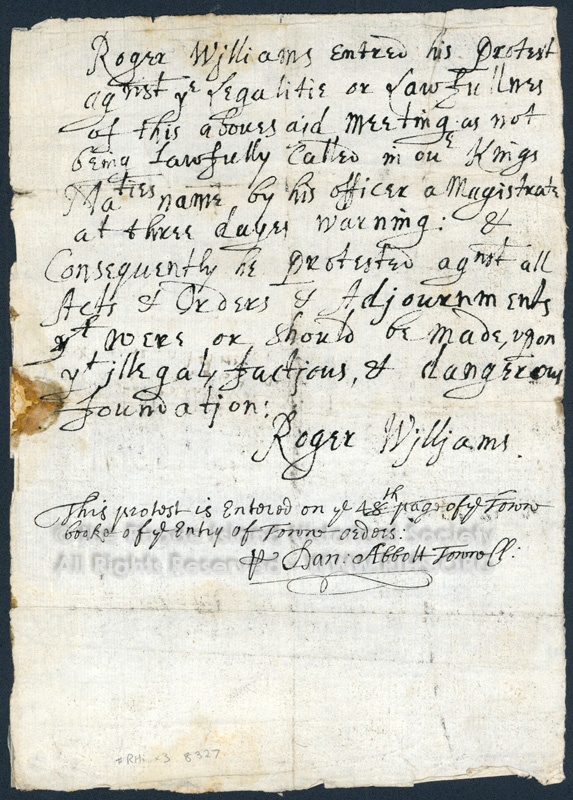 Roger Williams Entred his Protest
agnst ye Legalitie or Lawfullnes
of this abouesaid Meeting as not
being Lawfully Called in our Kings
Maties name by his officer a Magistrate
at three dayes warning: &
Consequently he Protested agnst all
Acts & Orders & Adjournments
yt were or should be made, upon
yt jllegal, factious, & dangerous
foundation:
Roger Williams.
This protest is Entered on ye 48th page of ye Towne
booke of ye Entry of Towne orders:
Dan: Abbott Towne Cl:
Society
All Rights Reserved
#RHi x3 8327